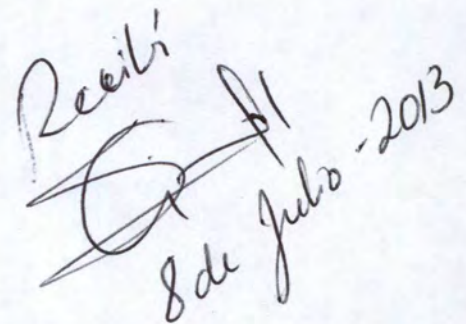 Recibí
8 de Julio - 2013